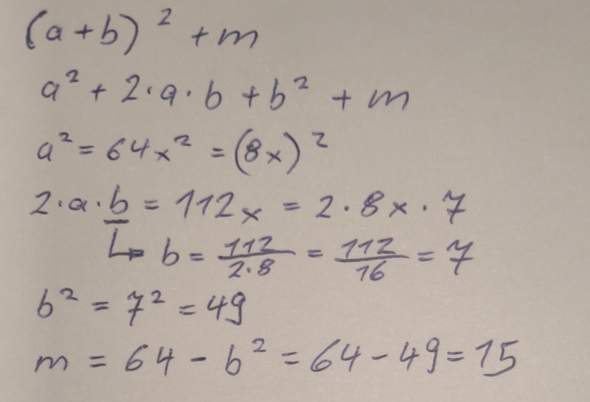 (a+b)² + m
a² + 2·a·b + b² + m
a² = 64x² = (8x)²
2·a·b = 112x = 2·8x·7
↳ b = 112/2·8 = 112/16 = 7
b² = 7² = 49
m = 64 - b² = 64 - 49 = 15